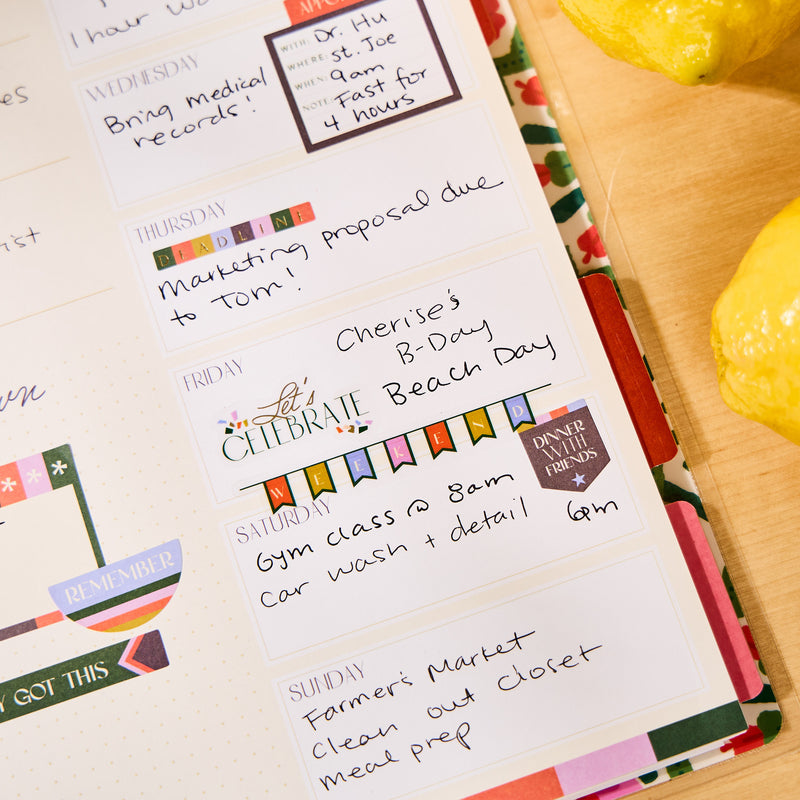 1 hour
WEDNESDAY
Bring medical
records!
WITH: Dr. Hu
WHERE: St. Joe
WHEN: 9am
NOTE: Fast for
4 hours
THURSDAY
DEADLINE
Marketing proposal due
to Tom!
FRIDAY
Cherise's
B-Day
Beach Day
Let's
CELEBRATE
WEEKEND
DINNER
WITH
FRIENDS
SATURDAY
Gym class @ 8am
6pm
Car wash + detail
SUNDAY
Farmer's Market
Clean out closet
meal prep
REMEMBER
GOT THIS